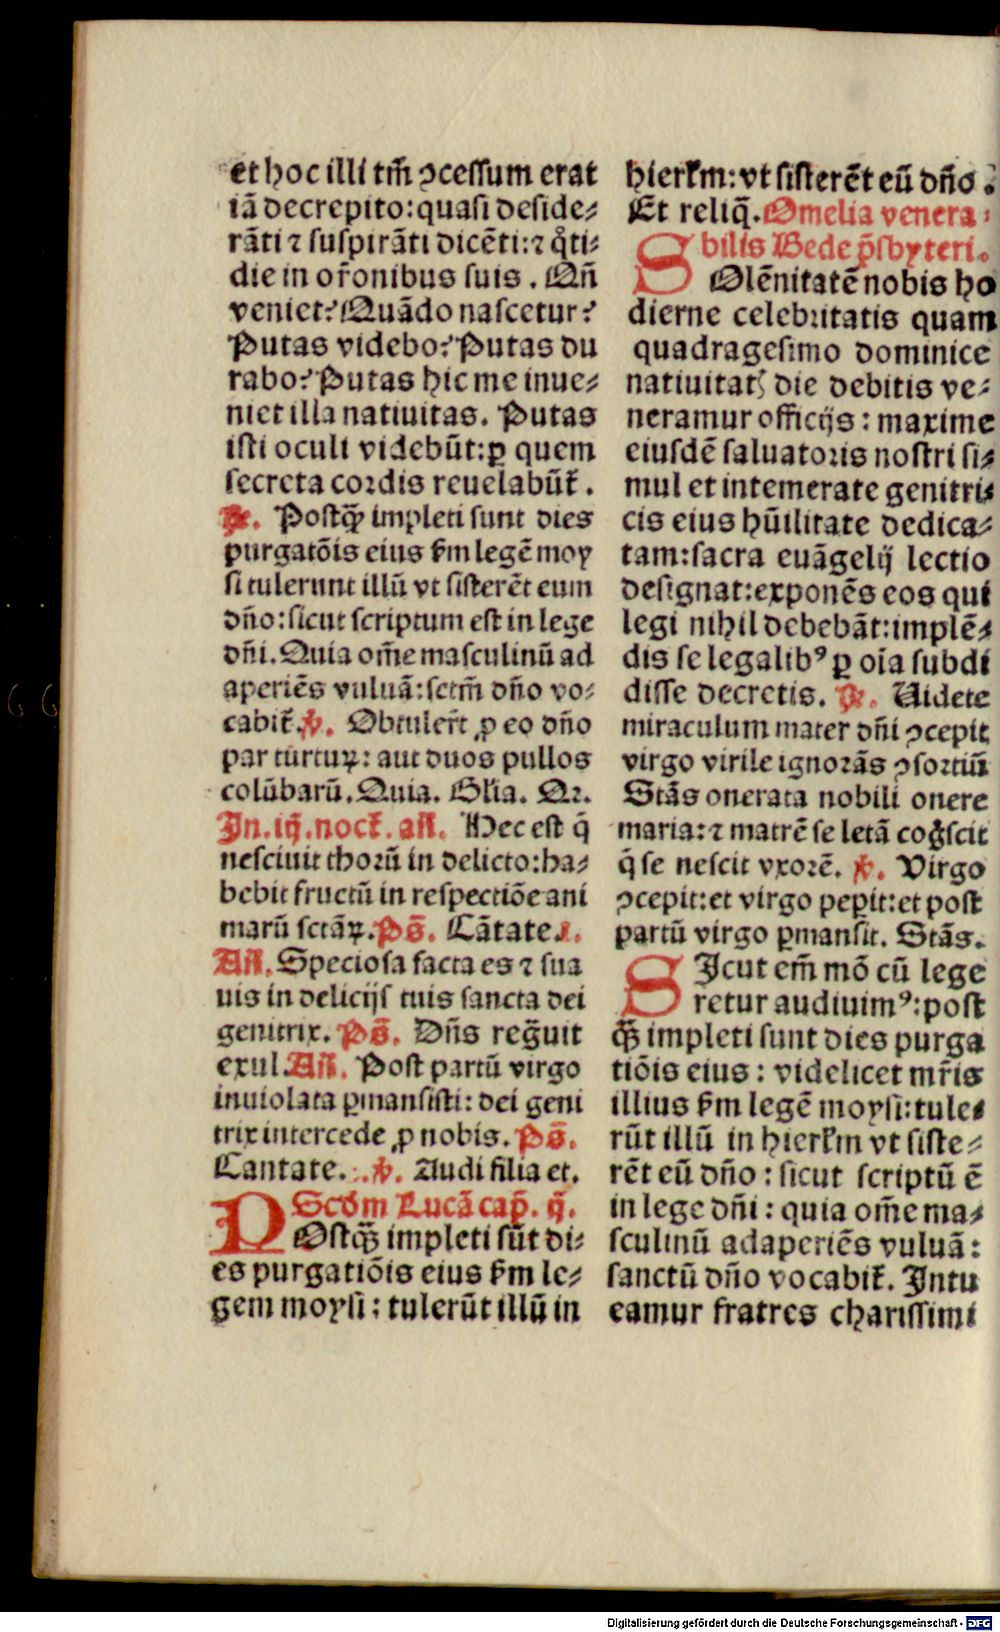 et hoc illi tm̄ ↄcessum erat
iā decrepito: quasi deside⸗
rāti ⁊ suspirāti dicēti: ⁊ q̇ti⸗
die in or̄onibus suis. Qñ
veniet? Quādo nascetur?
Putas videbo? Putas du
rabo? Putas hic me inue⸗
niet illa natiuitas. Putas
isti oculi videbūt: ꝑ quem
secreta cordis reuelabūt̄.
℟. Postq̄ȝ impleti sunt dies
purgatōis eius ẜm legē moy
si tulerunt illū vt sisterēt eum
dño: sicut scriptum est in lege
dñi. Quia om̄e masculinū ad
aperiēs vuluā: sctm̄ dño vo⸗
cabit̄. ℣. Obtuler̄t ꝓ eo dño
par turtuꝝ: aut duos pullos
colūbarū. Quia. Gl̄ia. Qr.
In .iij. noct̄. an̄. Hec est q̄
nesciuit thorū in delicto: ha⸗
bebit fructū in respectiōe ani
marū sctāꝝ. Ps̄. Cātate .i.
An̄. Speciosa facta es ⁊ sua
uis in delicijs tuis sancta dei
genitrix. Ps̄. Dñs reḡuit
exul. An̄. Post partū virgo
inuiolata ꝑmansisti: dei geni
trix intercede ꝓ nobis. Ps̄.
Cantate. ℣. Audi filia et.
Scd̄m Lucā cap̄. ij.
POstq̄ȝ impleti sūt di⸗
es purgatiōis eius ẜm le⸗
gem moysi: tulerūt illū in
hierl̄m: vt sisterēt eū dño.
Et reliq̄. Omelia venera⸗
bilis Bede p̄sbyteri.
SOlēnitatē nobis ho
dierne celebritatis quam
quadragesimo dominice
natiuitatꝭ die debitis ve⸗
neramur officijs: maxime
eiusdē saluatoris nostri si⸗
mul et intemerate genitri⸗
cis eius hūilitate dedica⸗
tam: sacra euāgelij lectio
designat: exponēs eos qui
legi nihil debebāt: implē⸗
dis se legalibꝰ ꝑ oīa subdi
disse decretis. ℟. Uidete
miraculum mater dñi ↄcepit
virgo virile ignorās ↄsortiū
Stās onerata nobili onere
maria: ⁊ matrē se letā coḡscit
q̄ se nescit vxorē. ℣. Virgo
ↄcepit: et virgo peꝑit: et post
partū virgo ꝑmansit. Stās.
SIcut em̄ mō cū lege
retur audiuimꝰ: post
q̄ȝ impleti sunt dies purga
tiōis eius: videlicet mr̄is
illius ẜm legē moysi: tule⸗
rūt illū in hierl̄m vt siste⸗
rēt eū dño: sicut scriptū ē
in lege dñi: quia om̄e ma⸗
sculinū adaperiēs vuluā:
sanctū dño vocabit̄. Intu
eamur fratres charissimi
Digitalisierung gefördert durch die Deutsche Forschungsgemeinschaft - DFG